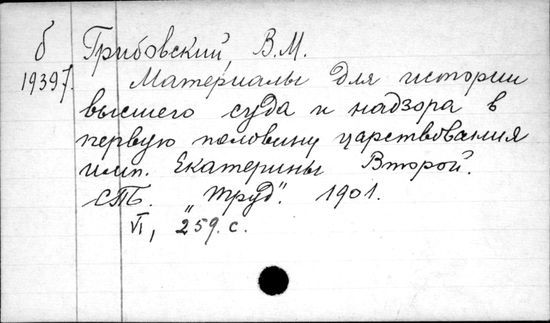 б Грибовский, В.М.
19397. Материалы для истории
высшего суда и надзора в
первую половину царствования
имп. Екатерины Второй.
СПБ. „Труд". 1901.
VI, 259. с.